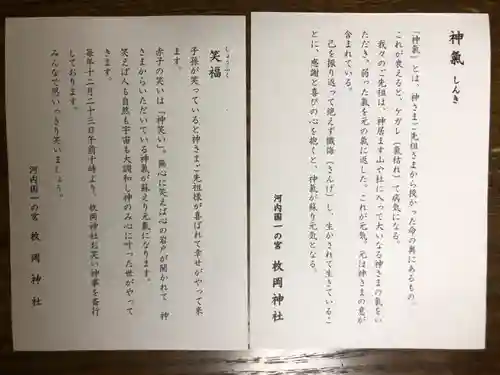 神氣 しんき
「神氣」とは、神さまご先祖さまから授かった命の奥にあるもの。
これが衰えると、ケガレ（氣枯れ）て病気になる。
我々のご先祖は、神居ます山や社に入って大いなる神さまの氣をい
ただき、弱った氣を元の氣に返した。これが元気。元は神さまの意が
含まれている。
己を振り返って絶えず懺悔（さんげ）し、生かされて生きているこ
とに、感謝と喜びの心を抱くと、神氣が蘇り元気となる。
河内国一の宮 枚岡神社
笑福
しょうふく
子孫が笑っていると神さまご先祖様が喜ばれて幸せがやって来
ます。
赤子の笑いは「神笑い」。無心に笑えば心の岩戸が開かれて 神
さまからいただいている神氣が蘇えり元氣になります。
笑えば人も自然も宇宙も大調和し神のみ心に叶った世がやって
きます。
毎年十二月二十三日午前十時より、枚岡神社お笑い神事を斎行
しております。
みんなで思いっきり笑いましょう。
河内国一の宮 枚岡神社